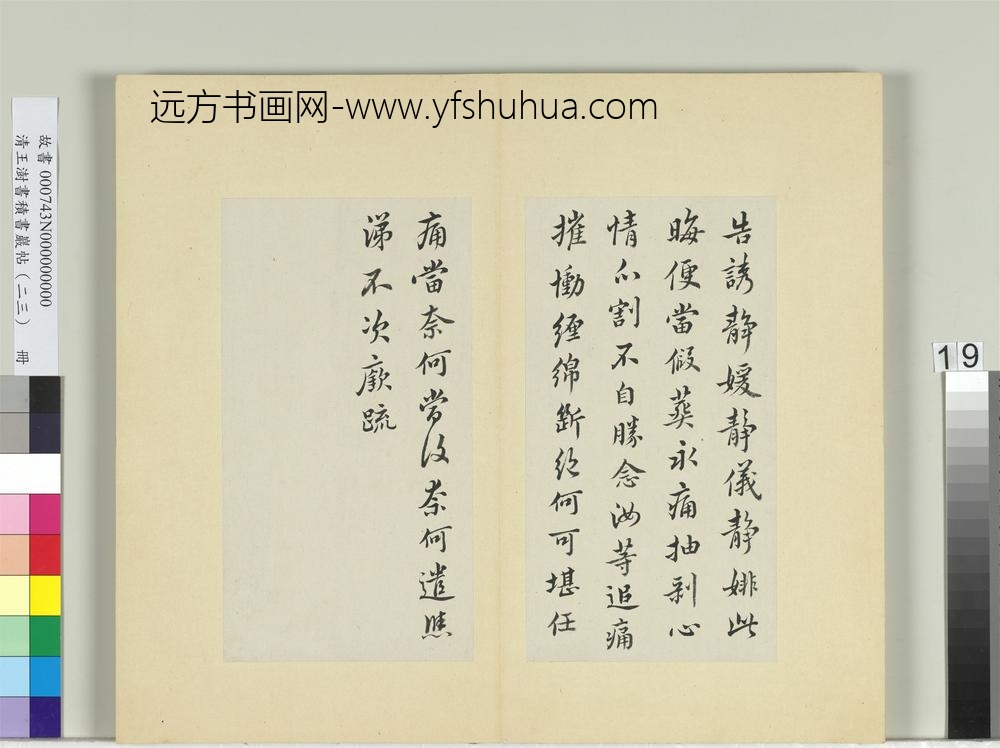 告誘静媛静儀静婔此
晦便當假葬永痛抽剥心
情分割不自勝念汝等追痛
摧慟纏綿斷絕何可堪任
痛當奈何當復奈何遣
涕不次廞疏
远方书画网-www.yfshuhua.com
故書 000743N000000000
清王澍書積書巖帖（二三） 冊
19